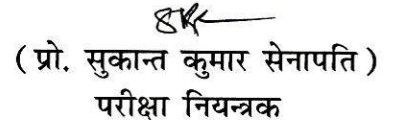 ( प्रो. सुकान्त कुमार सेनापति )
परीक्षा नियन्त्रक